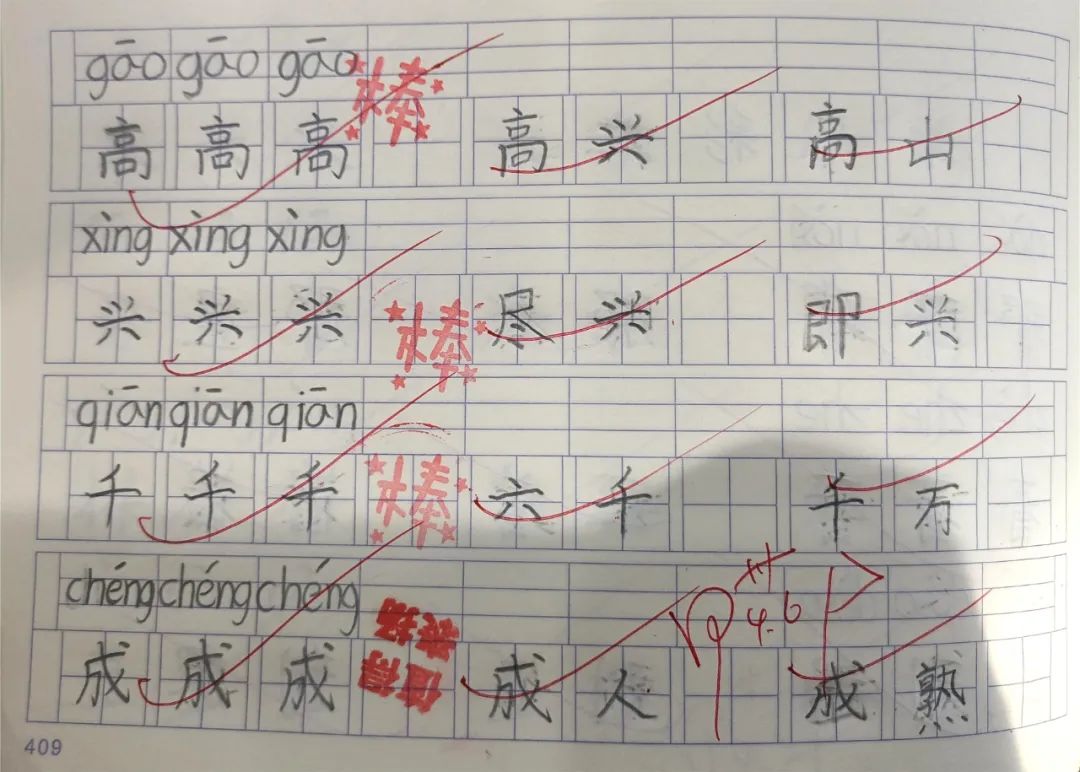 gāo gāo gāo
高 高 高 棒 高 兴 高 山
xìng xìng xìng
兴 兴 兴 棒 尽 兴 即 兴
qiān qiān qiān
千 千 千 棒 六 千 千 万
chéng chéng chéng
4.6
成 成 成 值得 表扬 成 人 成 熟
409